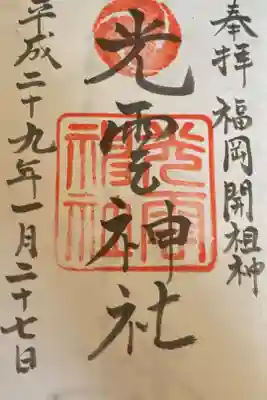 奉拝 福岡開祖神
光雲神社
平成二十九年一月二十七日